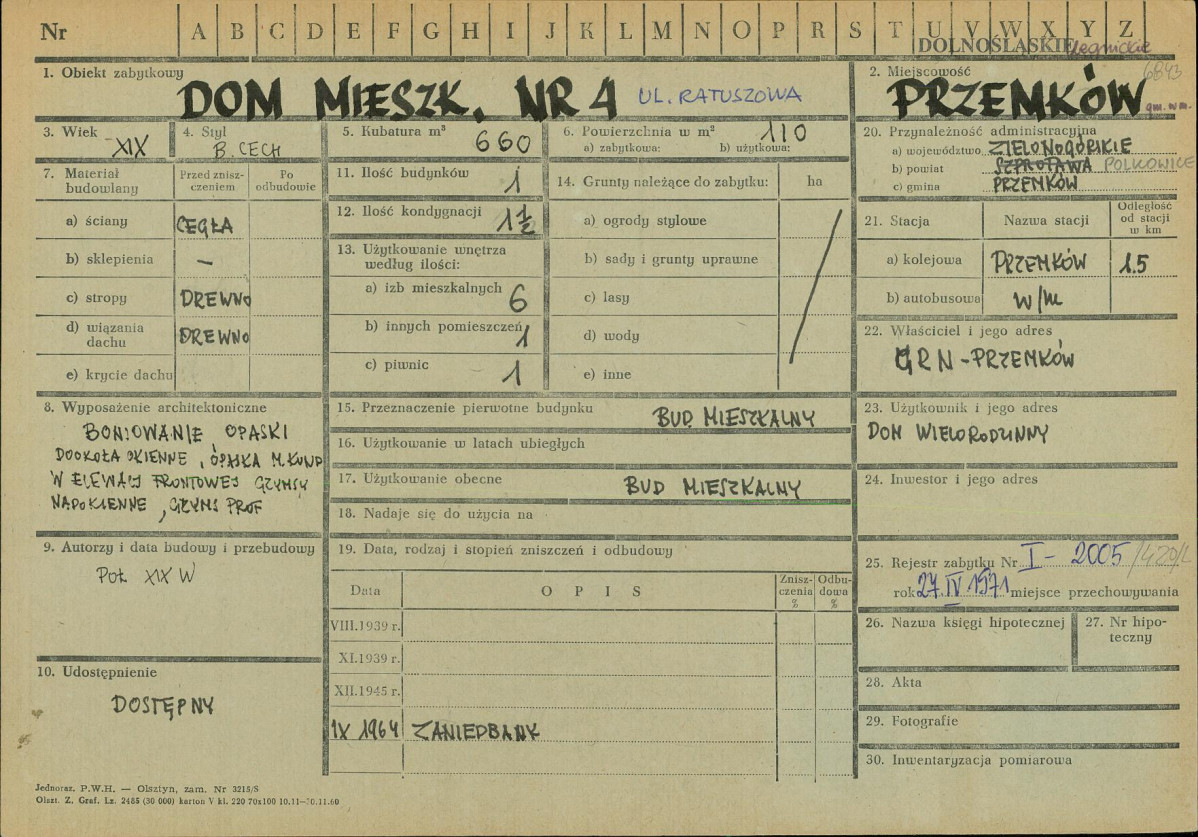 Nr A B C D E F G H I J K L M N O P R S T U V W X Y Z
DOLNOŚLĄSKIE legnickie
1. Obiekt zabytkowy
DOM MIESZK. NR 4 UL. RATUSZOWA
2. Miejscowość 6843
PRZEMKÓW gm. w m.
3. Wiek XIX
4. Styl B. CECH
5. Kubatura m³ 660
6. Powierzchnia w m² 110
a) zabytkowa: b) użytkowa:
7. Materiał budowlany
Przed zniszczeniem
Po odbudowie
a) ściany CEGŁA
b) sklepienia –
c) stropy DREWNO
d) wiązania dachu DREWNO
e) krycie dachu
8. Wyposażenie architektoniczne
BONIOWANIE, OPASKI
DOOKOŁA OKIENNE, OPASKA M.KOND
W ELEWACJ FRONTOWEJ GZYMSY
NADOKIENNE, GZYMS PROF
9. Autorzy i data budowy i przebudowy
POŁ XIX W
10. Udostępnienie
DOSTĘPNY
11. Ilość budynków 1
12. Ilość kondygnacji 1 1/2
13. Użytkowanie wnętrza
według ilości:
a) izb mieszkalnych 6
b) innych pomieszczeń 1
c) piwnic 1
14. Grunty należące do zabytku: ha
a) ogrody stylowe
b) sady i grunty uprawne
c) lasy
d) wody
e) inne
15. Przeznaczenie pierwotne budynku BUD. MIESZKALNY
16. Użytkowanie w latach ubiegłych
17. Użytkowanie obecne BUD MIESZKALNY
18. Nadaje się do użycia na
19. Data, rodzaj i stopień zniszczeń i odbudowy
Data OPIS Zniszczenia % Odbudowa %
VIII.1939 r.
XI.1939 r.
XII.1945 r.
IX 1964 ZANIEDBANK
20. Przynależność administracyjna
a) województwo ZIELONOGÓRSKIE
b) powiat SZPROTAWA POLKOWICE
c) gmina PRZEMKÓW
21. Stacja Nazwa stacji Odległość od stacji w km
a) kolejowa PRZEMKÓW 1.5
b) autobusowa w/m
22. Właściciel i jego adres
GRN-PRZEMKÓW
23. Użytkownik i jego adres
DOM WIELORODZINNY
24. Inwestor i jego adres
25. Rejestr zabytku Nr I - 2005 /429/L
rok 27.IV 1971 miejsce przechowywania
26. Nazwa księgi hipotecznej
27. Nr hipoteczny
28. Akta
29. Fotografie
30. Inwentaryzacja pomiarowa
Jednoraz. P.W.H. — Olsztyn, zam. Nr 3215/S
Olszt. Z. Graf. Lz. 2485 (30 000) karton V kl. 220 70x100 10.11—30.11.60